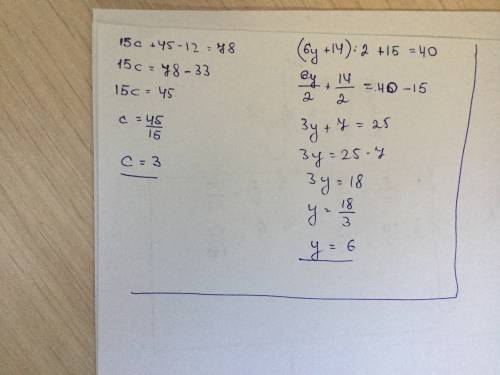 15c + 45 - 12 = 78
15c = 78 - 33
15c = 45
c = 45/15
c = 3
(6y + 14) : 2 + 15 = 40
6y/2 + 14/2 = 40 - 15
3y + 7 = 25
3y = 25 - 7
3y = 18
y = 18/3
y = 6